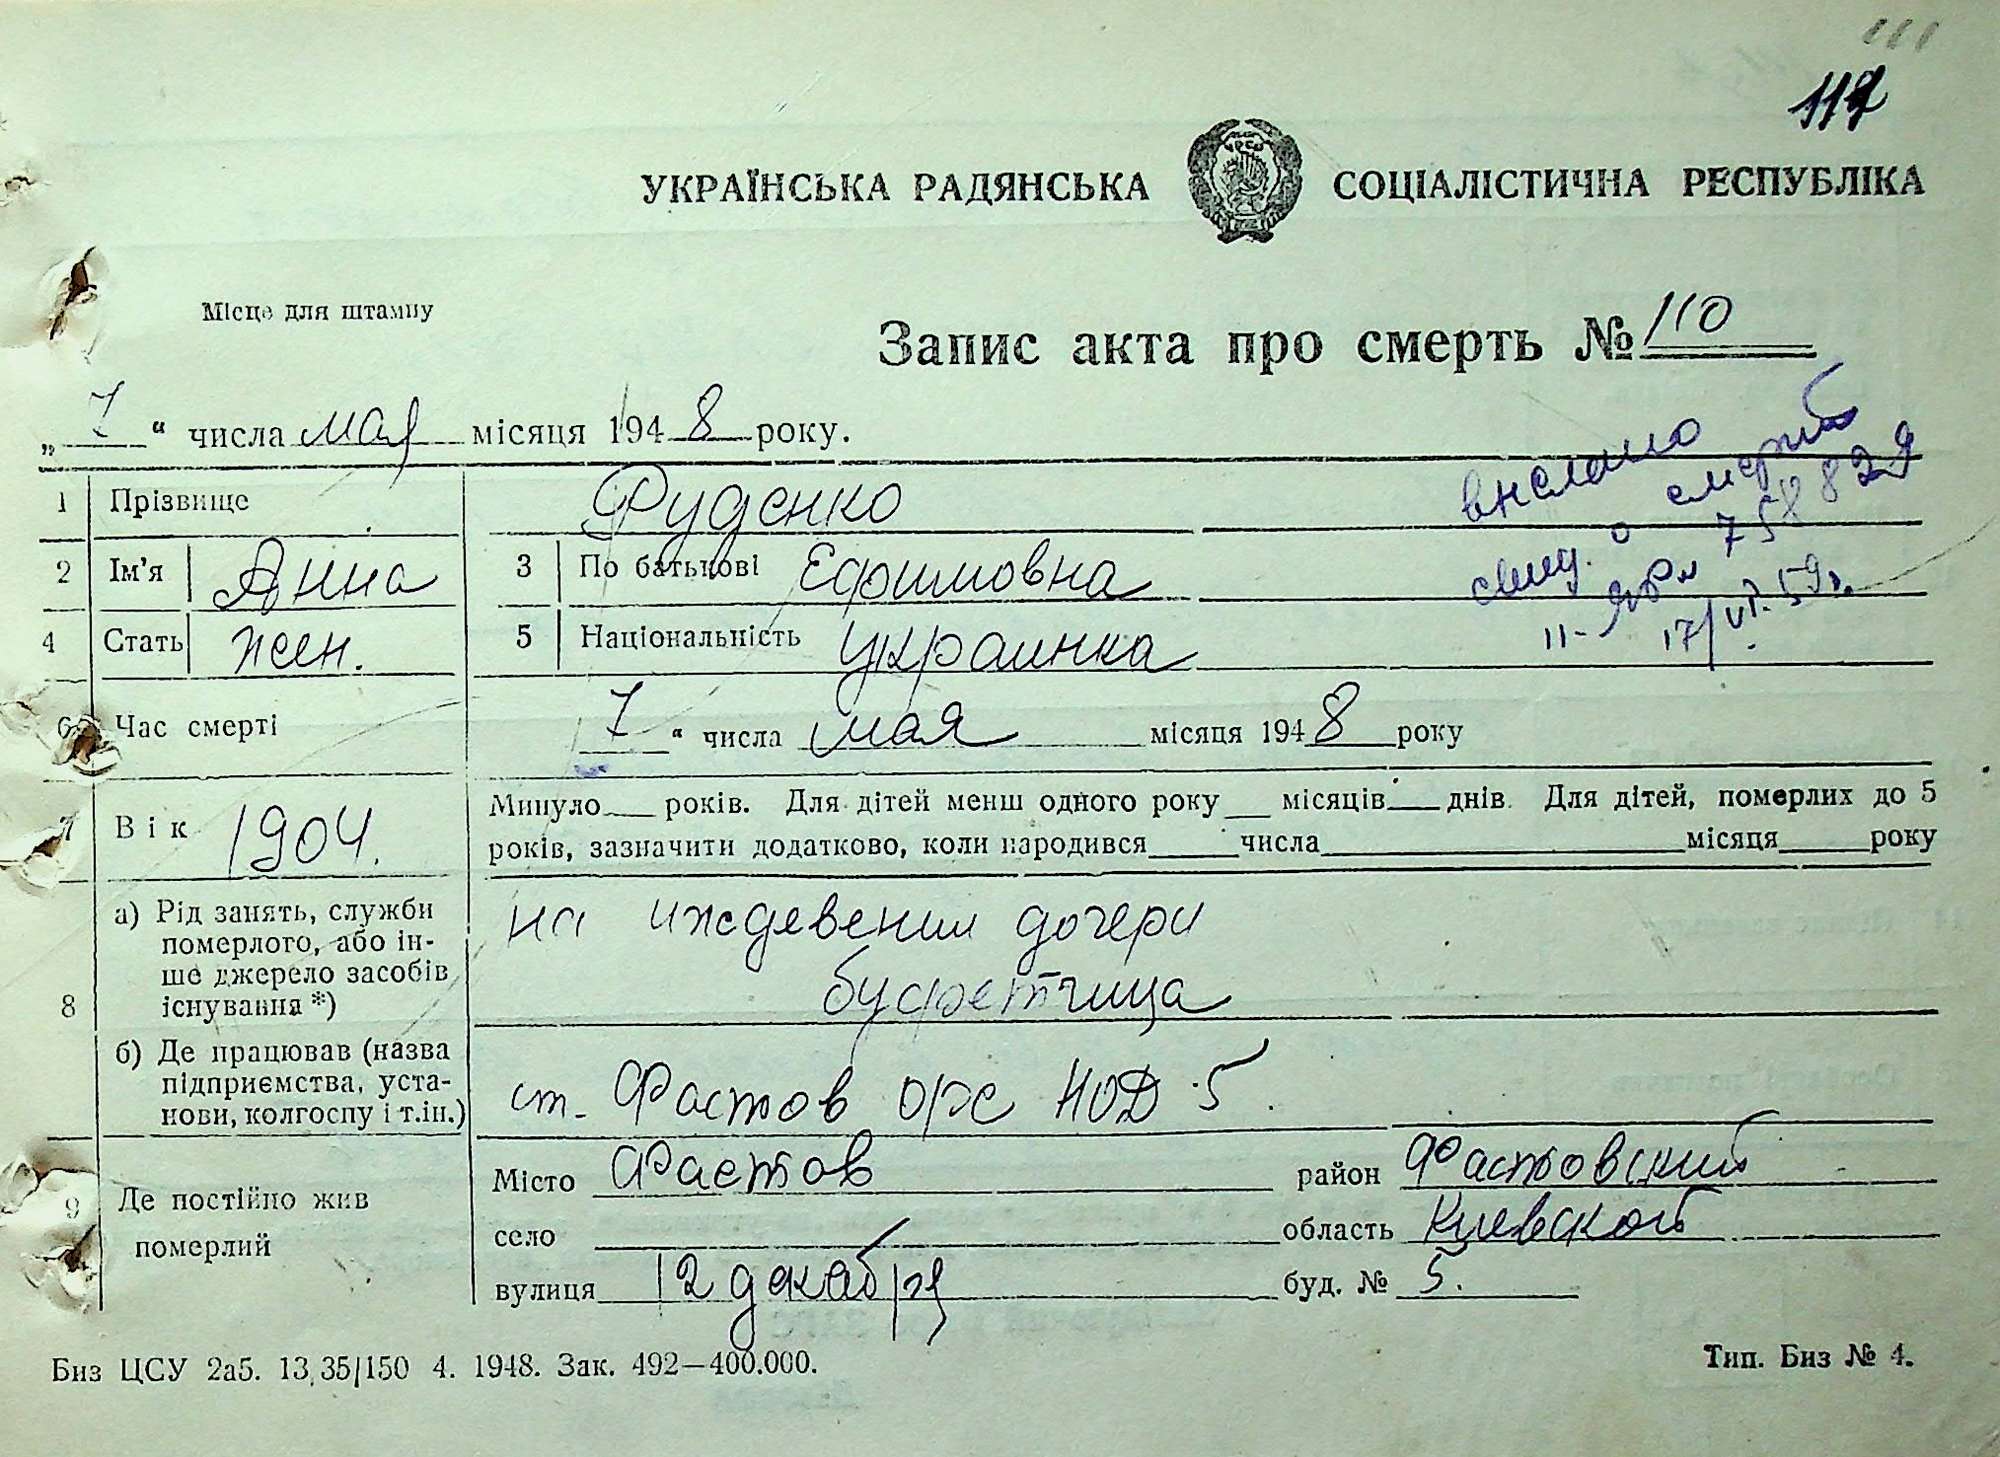 111
117
УКРАЇНСЬКА РАДЯНСЬКА СОЦІАЛІСТИЧНА РЕСПУБЛІКА
УРСР
Місце для штампу
Запис акта про смерть № 110
„ 7 “ числа мая місяця 1948 року.
выслано
свид. о смерти
II-
758829
17/VI.59г.
1 Прізвище Руденко
2 Ім’я Анна 3 По батькові Ефимовна
4 Стать жен. 5 Національність украинка
6 Час смерті 7 “ числа мая місяця 1948 року
7 Вік 1904. Минуло___ років. Для дітей менш одного року___ місяців___ днів. Для дітей, померлих до 5
років, зазначити додатково, коли народився_____числа_____місяця_____року
8 а) Рід занять, служби
померлого, або ін-
ше джерело засобів
існування *)
на иждевении дочери
буфетчица
б) Де працював (назва
підприємства, уста-
нови, колгоспу і т.ін.)
ст. Фастов орс НОД-5.
9 Де постійно жив
померлий
Місто Фастов район Фастовский
село — область Киевской
вулиця 12 декабря буд. № 5.
Биз ЦСУ 2а5. 13,35/150 4. 1948. Зак. 492—400.000. Тип. Биз № 4.